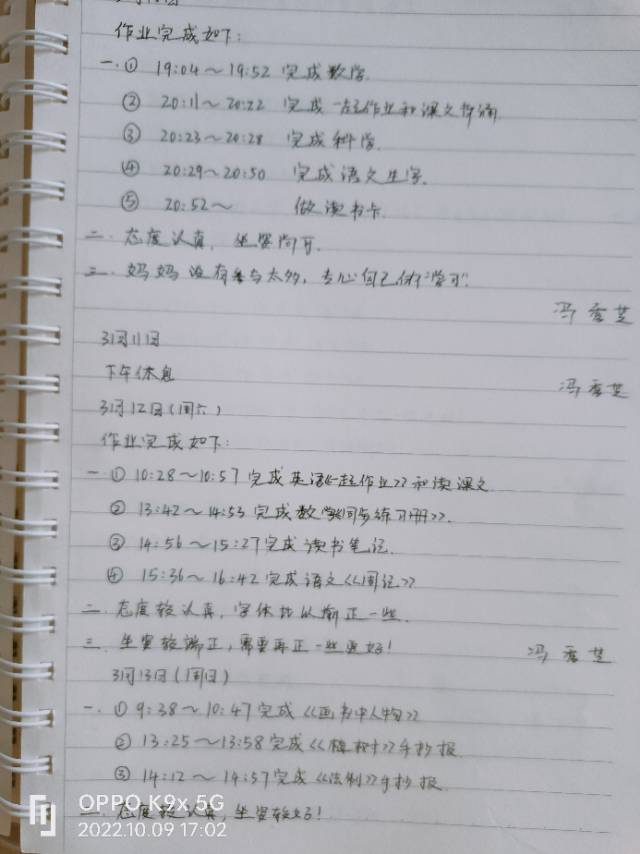 作业完成如下:
一.① 19:04～19:52 完成数学.
② 20:11～20:22 完成一起作业和课文背诵
③ 20:23～20:28 完成科学.
④ 20:29～20:50 完成语文生字.
⑤ 20:52～ 做读书卡
二.态度认真,坐姿尚可.
三.妈妈没有参与太多,专心自己作"学习".
冯秀芝
3月11日
下午休息
冯秀芝
3月12日(周六)
作业完成如下:
一.① 10:28～10:57完成英语《一起作业》和读课文
② 13:42～14:53完成数学《同步练习册》.
③ 14:56～15:27完成读书笔记.
④ 15:36～16:42完成语文《周记》
二.态度较认真,字体比以前正一些.
三.坐姿较端正,需要再正一些更好!
冯秀芝
3月13日(周日)
一.① 9:38～10:47完成《画书中人物》
② 13:25～13:58完成《植树》手抄报.
③ 14:12～14:57完成《法制》手抄报.
二.态度较认真,坐姿较好!
OPPO K9x 5G
2022.10.09 17:02